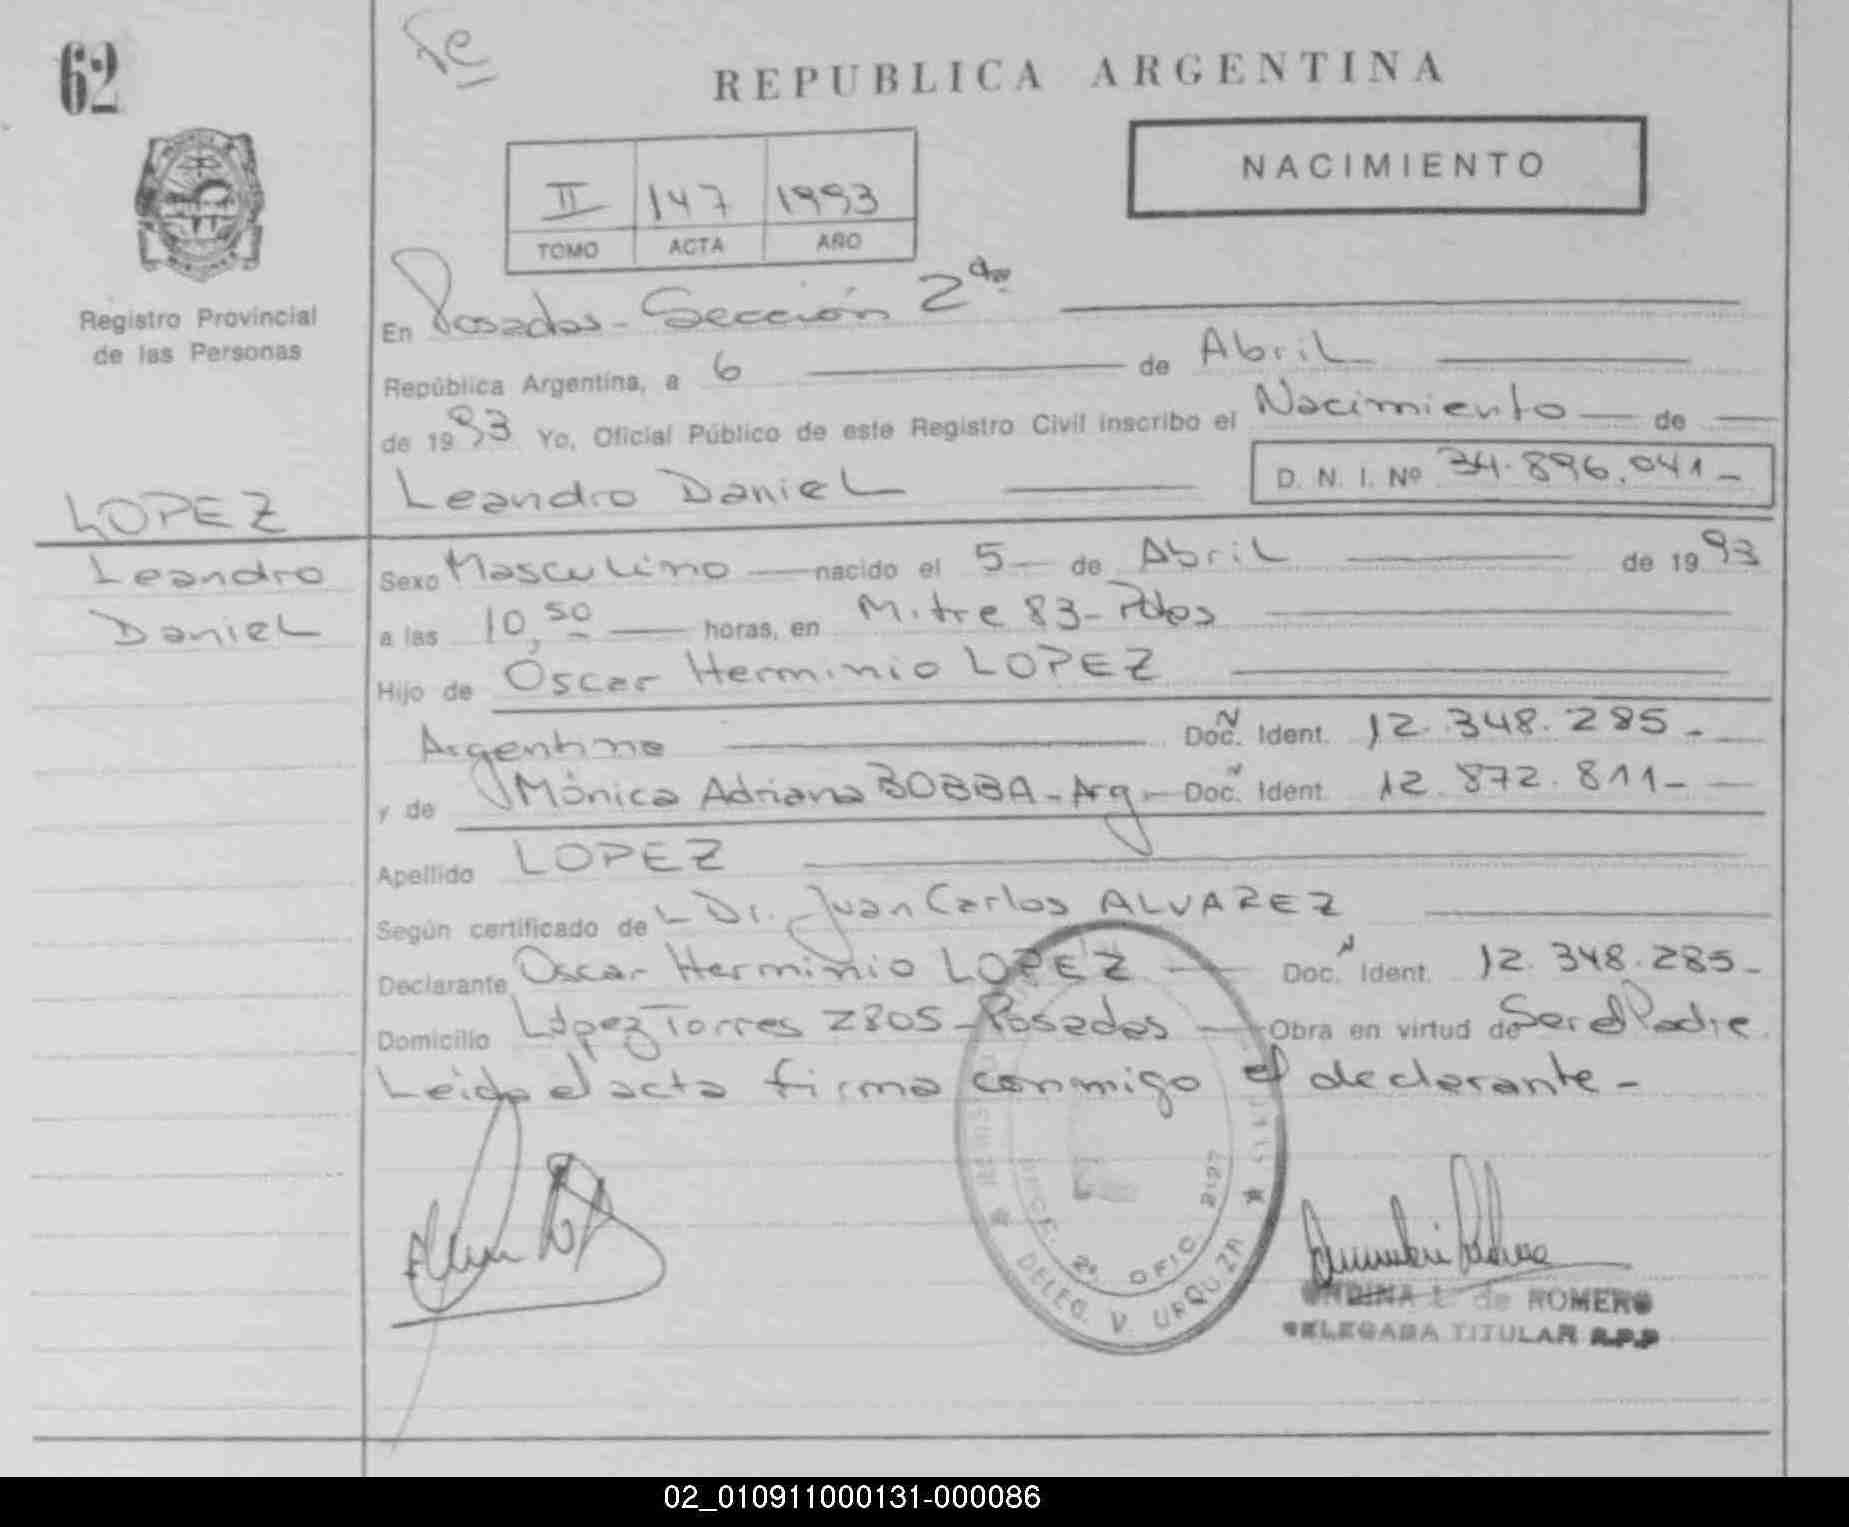 62
REPUBLICA ARGENTINA
NACIMIENTO
II 147 1993
TOMO ACTA AÑO
Registro Provincial
de las Personas
En Posadas - Sección 2da
República Argentina, a 6 de Abril
de 1993 Yo, Oficial Público de este Registro Civil inscribo el Nacimiento de
LOPEZ
Leandro Daniel
Leandro Daniel D. N. I. Nº 34.896.041-
Sexo Masculino nacido el 5 de Abril de 1993
a las 10,50 horas, en Mitre 83 - Pdas
Hijo de Oscar Herminio LOPEZ
Argentino Doc. N Ident. 12.348.285-
y de Mónica Adriana BOBBA - Arg. - Doc. N Ident. 12.872.811-
Apellido LOPEZ
Según certificado del Dr. Juan Carlos ALVAREZ
Declarante Oscar Herminio LOPEZ Doc. N Ident. 12.348.285-
Domicilio López Torres 2805 - Posadas Obra en virtud de Ser el Padre
Leida el acta firma conmigo el declarante -
SECC. 2ª OFIC. 2127
DELEG. V. URQUIZA
ONDINA L. de ROMERO
DELEGADA TITULAR R.P.P
02_010911000131-000086